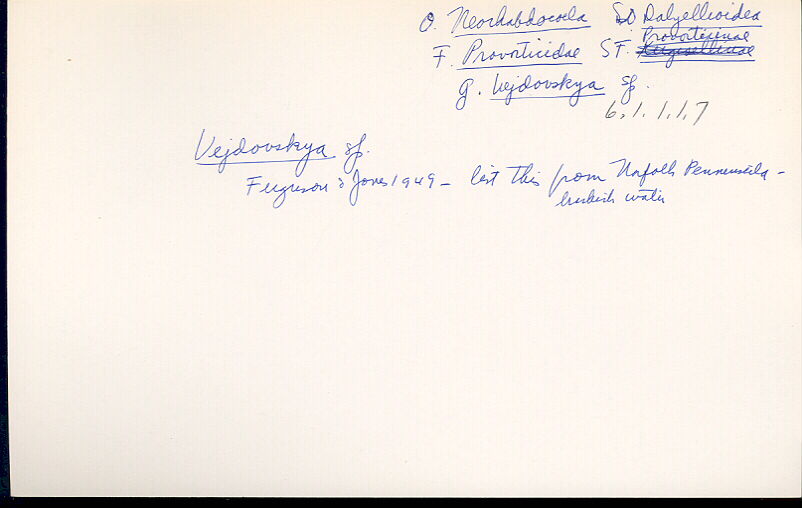 O. Neorhabdocoela SO Dalyellioidea
F. Provorticidae SF. Provorticinae
g. Vejdovskya sp.
6.1.1.1.7
Vejdovskya sp.
Ferguson & Jones 1949 - list this from Norfolk Pennensula -
brackish water